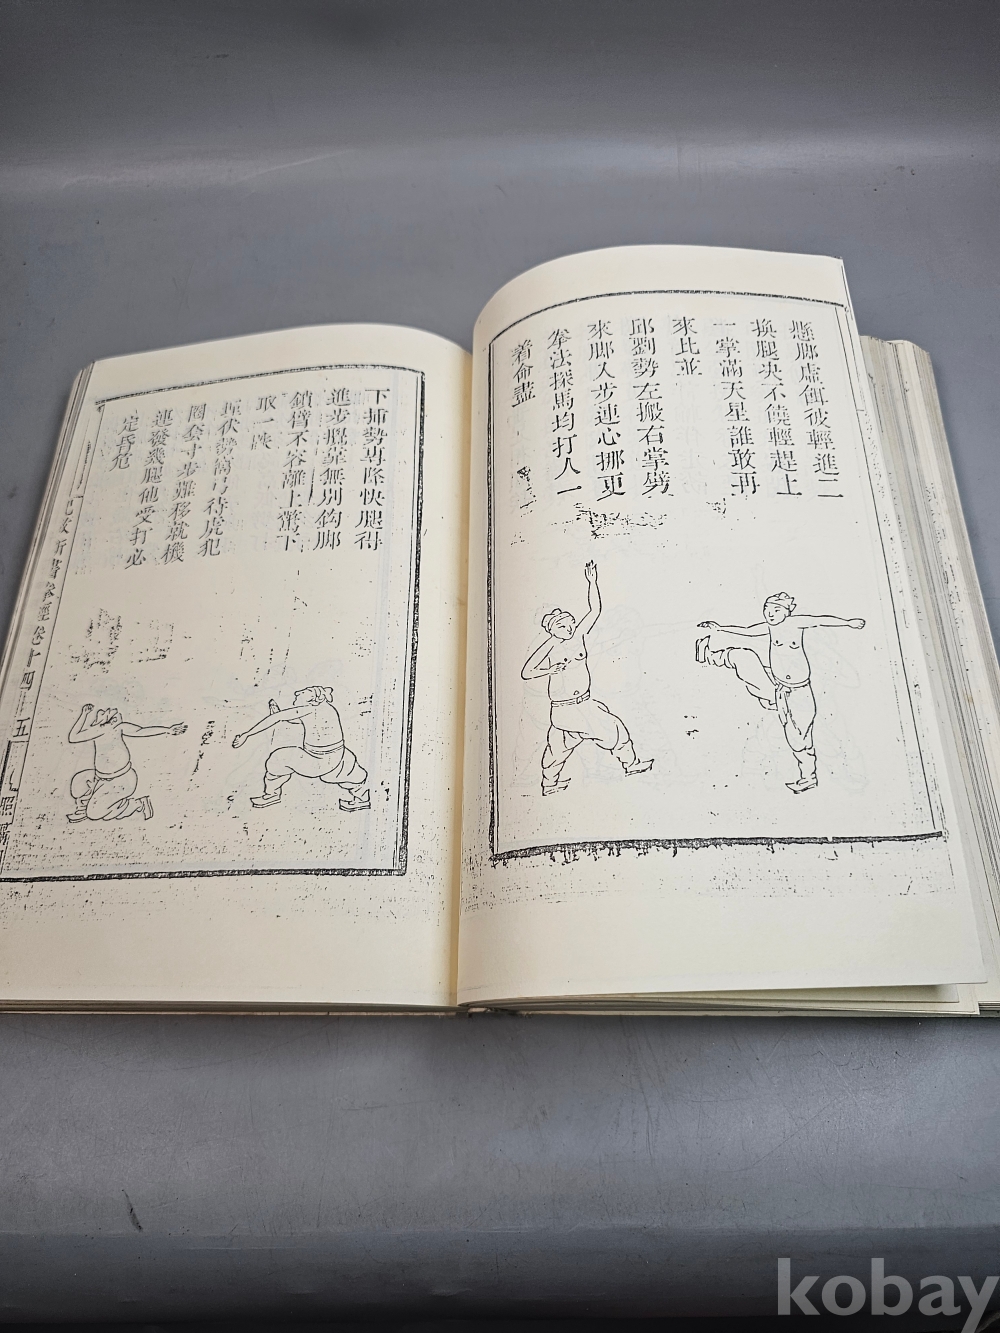 懸脚虛餌彼輕進二
換腿决不饒輕趕上
一掌滿天星誰敢再
來比並
邱劉勢左搬右掌劈
來脚入步連心挪更
拳法探馬均打人一
着命盡
下揷勢專降快腿得
進步攪靠無別鈎脚
鎖臂不容離上驚下
取一跌
埋伏勢窩弓待虎犯
圈套寸步難移就機
連發幾腿他受打必
定昏危
紀效新書拳經卷十四 五 照
kobay